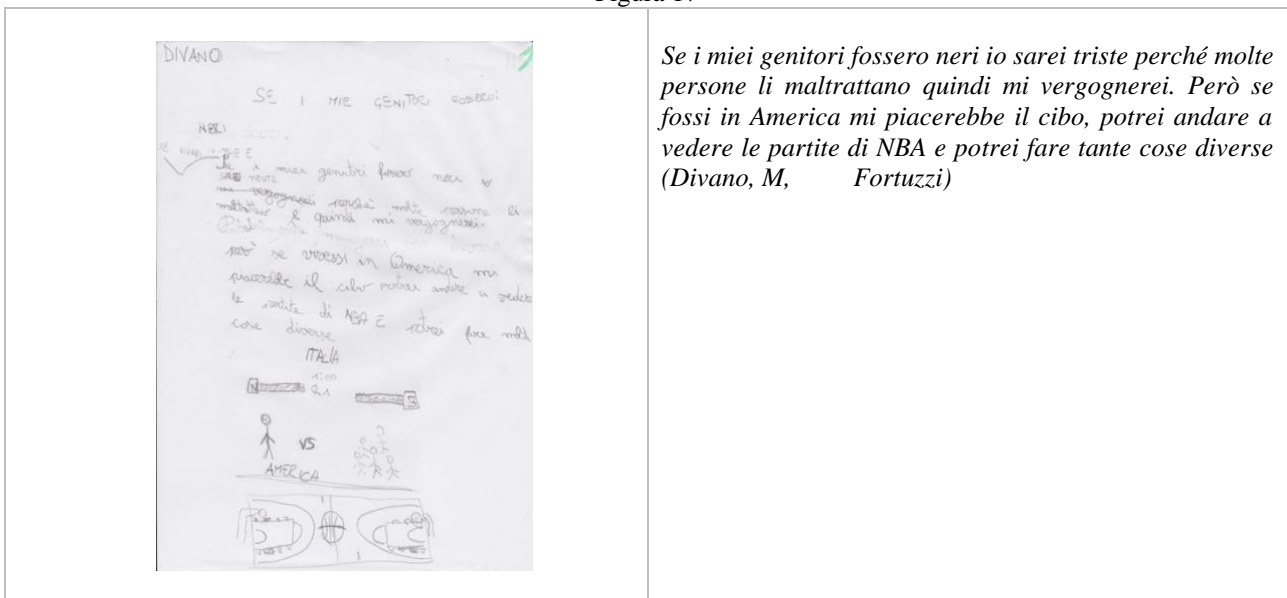 DIVANO
SE I MIE GENITORI FOSSERO:
NERI
miei genitori fossero neri io
mi vergognerei perchè molte persone li
maltrattano e quindi mi vergognerei.
però se vivessi in America mi
piacerebbe il cibo potrei andare a veder
le partite di NBA E potrei fare molte
cose diverse
ITALIA
1:00
N
B
VS
AMERICA
Se i miei genitori fossero neri io sarei triste perché molte
persone li maltrattano quindi mi vergognerei. Però se
fossi in America mi piacerebbe il cibo, potrei andare a
vedere le partite di NBA e potrei fare tante cose diverse
(Divano, M, Fortuzzi)